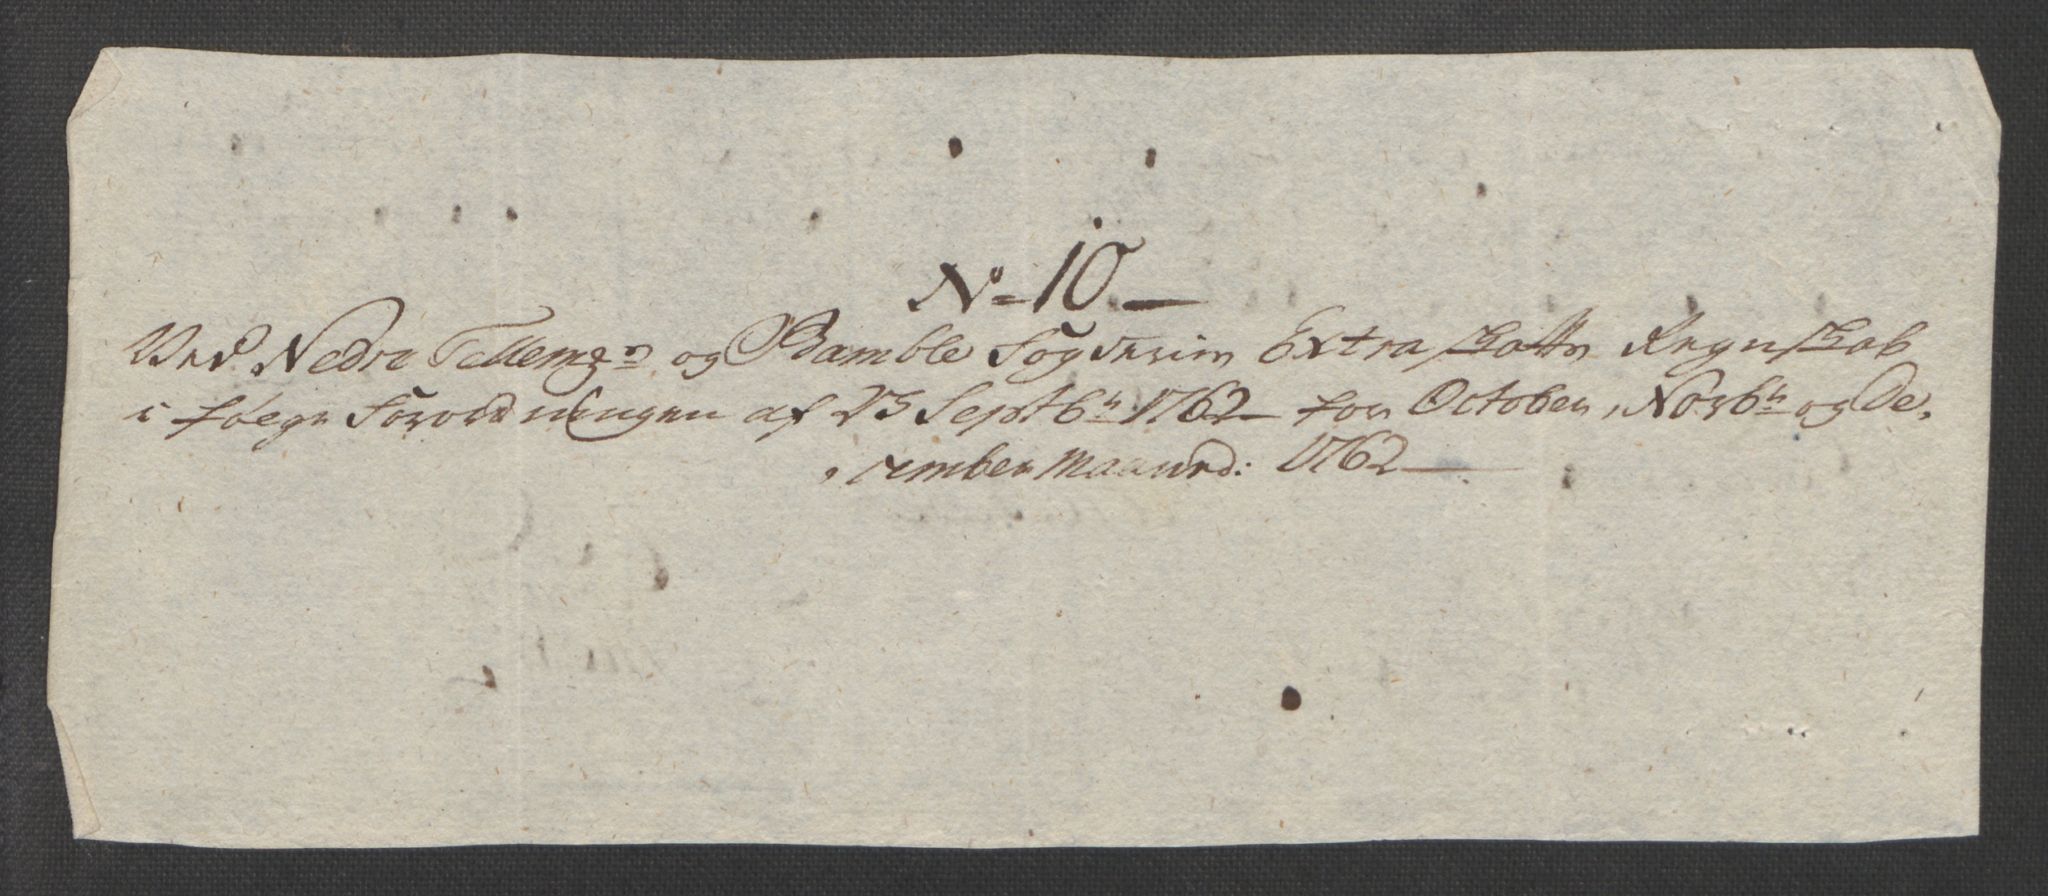 No = 10 —
Ved Nedre Tellemz: og Bamble Fogderies Extra skatts Regnskab
i følge Forordningen af 23 Septbr 1762 — for October, Novbr og De,
, cember Maaned: 1762 —